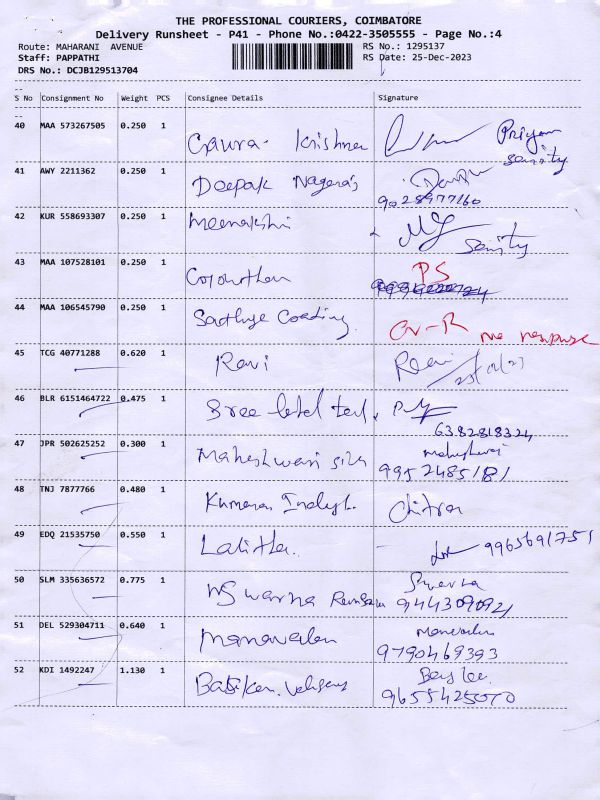 THE PROFESSIONAL COURIERS, COIMBATORE
Delivery Runsheet - P41 - Phone No.:0422-3505555 - Page No.:4
Route: MAHARANI AVENUE RS No.: 1295137
Staff: PAPPATHI RS Date: 25-Dec-2023
DRS No.: DCJB129513704
--
S No Consignment No Weight PCS Consignee Details Signature
--
40 MAA 573267505 0.250 1 Gaura Krishna Priyam
security
41 AWY 2211362 0.250 1 Deepak Nagaraj
9028977160
42 KUR 558693307 0.250 1 Meenakshi
security
43 MAA 107528101 0.250 1 PS
44 MAA 106545790 0.250 1 no response
45 TCG 40771288 0.620 1 Ravi Ravi
46 BLR 6151464722 0.475 1 Sree
6382818324
47 JPR 502625252 0.300 1 Maheshwari Maheshwari
9952485181
48 TNJ 7877766 0.480 1 Kumaran Chitra
49 EDQ 21535750 0.550 1 Lalitha. 9965691751
50 SLM 335636572 0.775 1 Swarna
51 DEL 529304711 0.640 1 Manavalan
9790469393
52 KDI 1492247 1.130 1
9655425070